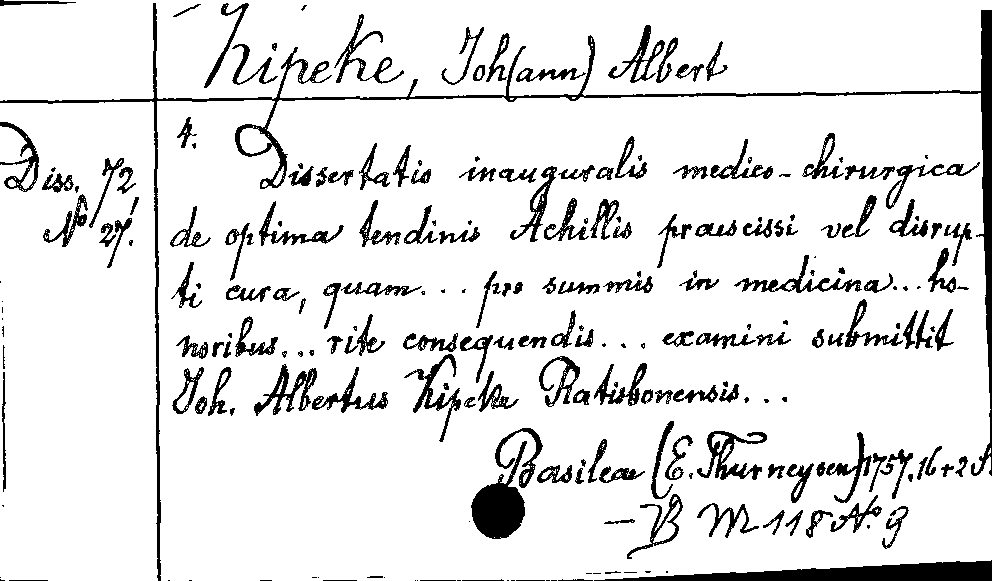 Kipeke, Joh(ann) Albert
4.
Diss. 72,
No 27.
Dissertatio inauguralis medico-chirurgica
de optima tendinis Achillis praescissi vel disrup-
ti cura, quam... pro summis in medicina... ho-
noribus... rite consequendis... examini submittit
Joh. Albertus Kipeke Ratisbonensis...
Basileae (E. Thurneysen) 1757. 16+2 S.
— B M 118 No. 9